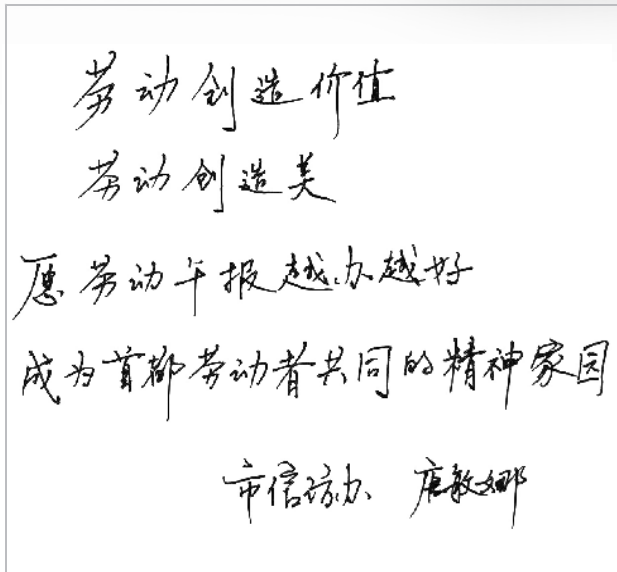 劳动创造价值
劳动创造美
愿劳动午报越办越好
成为首都劳动者共同的精神家园
市信访办 唐敏娜